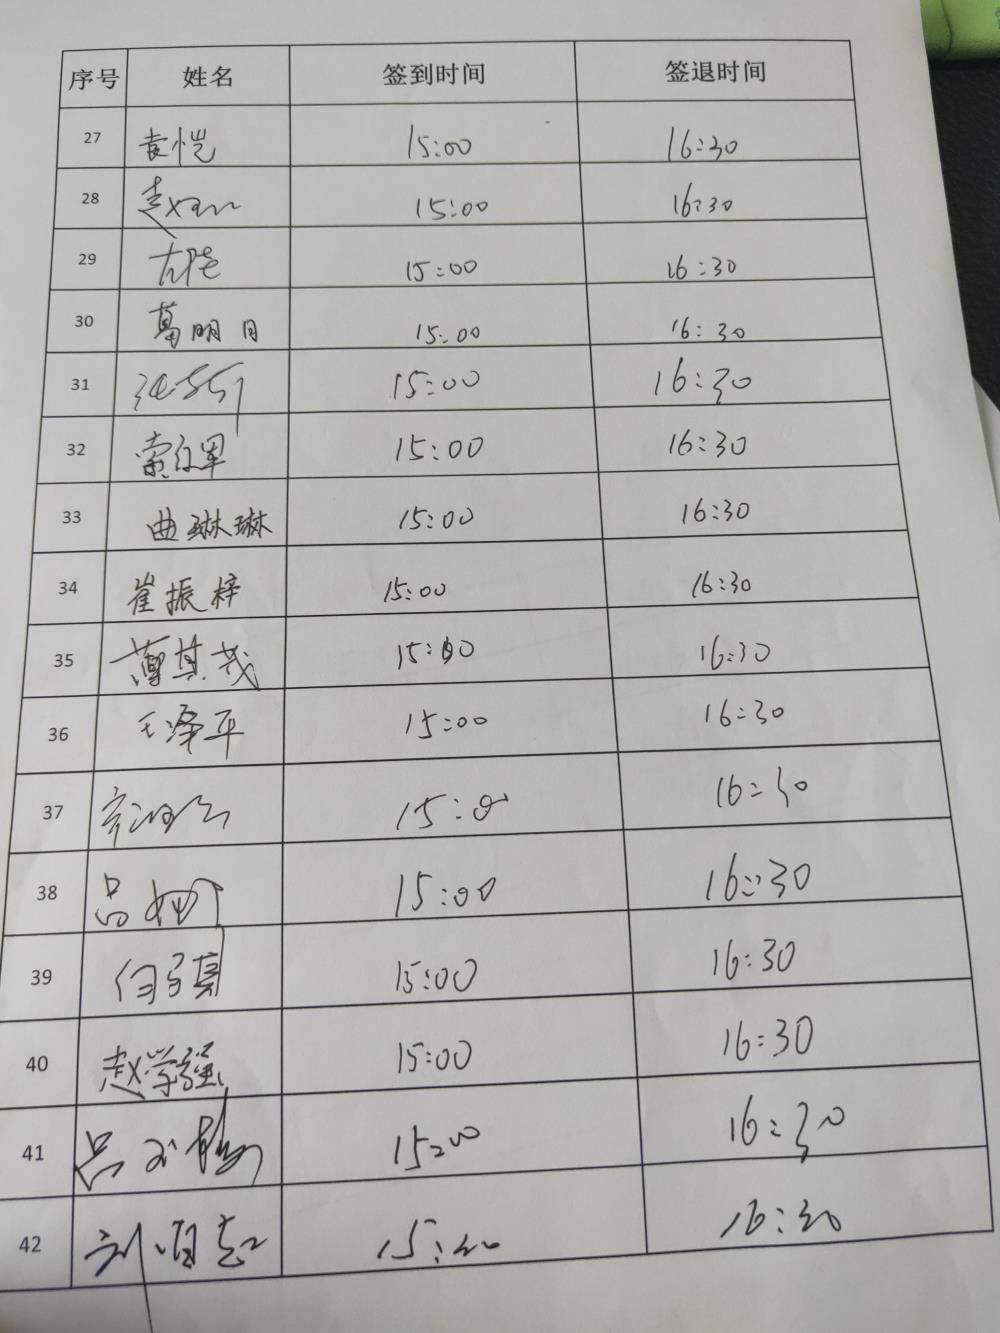 序号 姓名 签到时间 签退时间
27 袁恺 15:00 16:30
28 15:00 16:30
29 15:00 16:30
30 葛明月 15:00 16:30
31 15:00 16:30
32 15:00 16:30
33 曲琳琳 15:00 16:30
34 崔振梓 15:00 16:30
35 15:00 16:30
36 王泽平 15:00 16:30
37 15:00 16:30
38 吕 15:00 16:30
39 15:00 16:30
40 赵学强 15:00 16:30
41 吕 15:00 16:30
42 刘 15:00 16:30